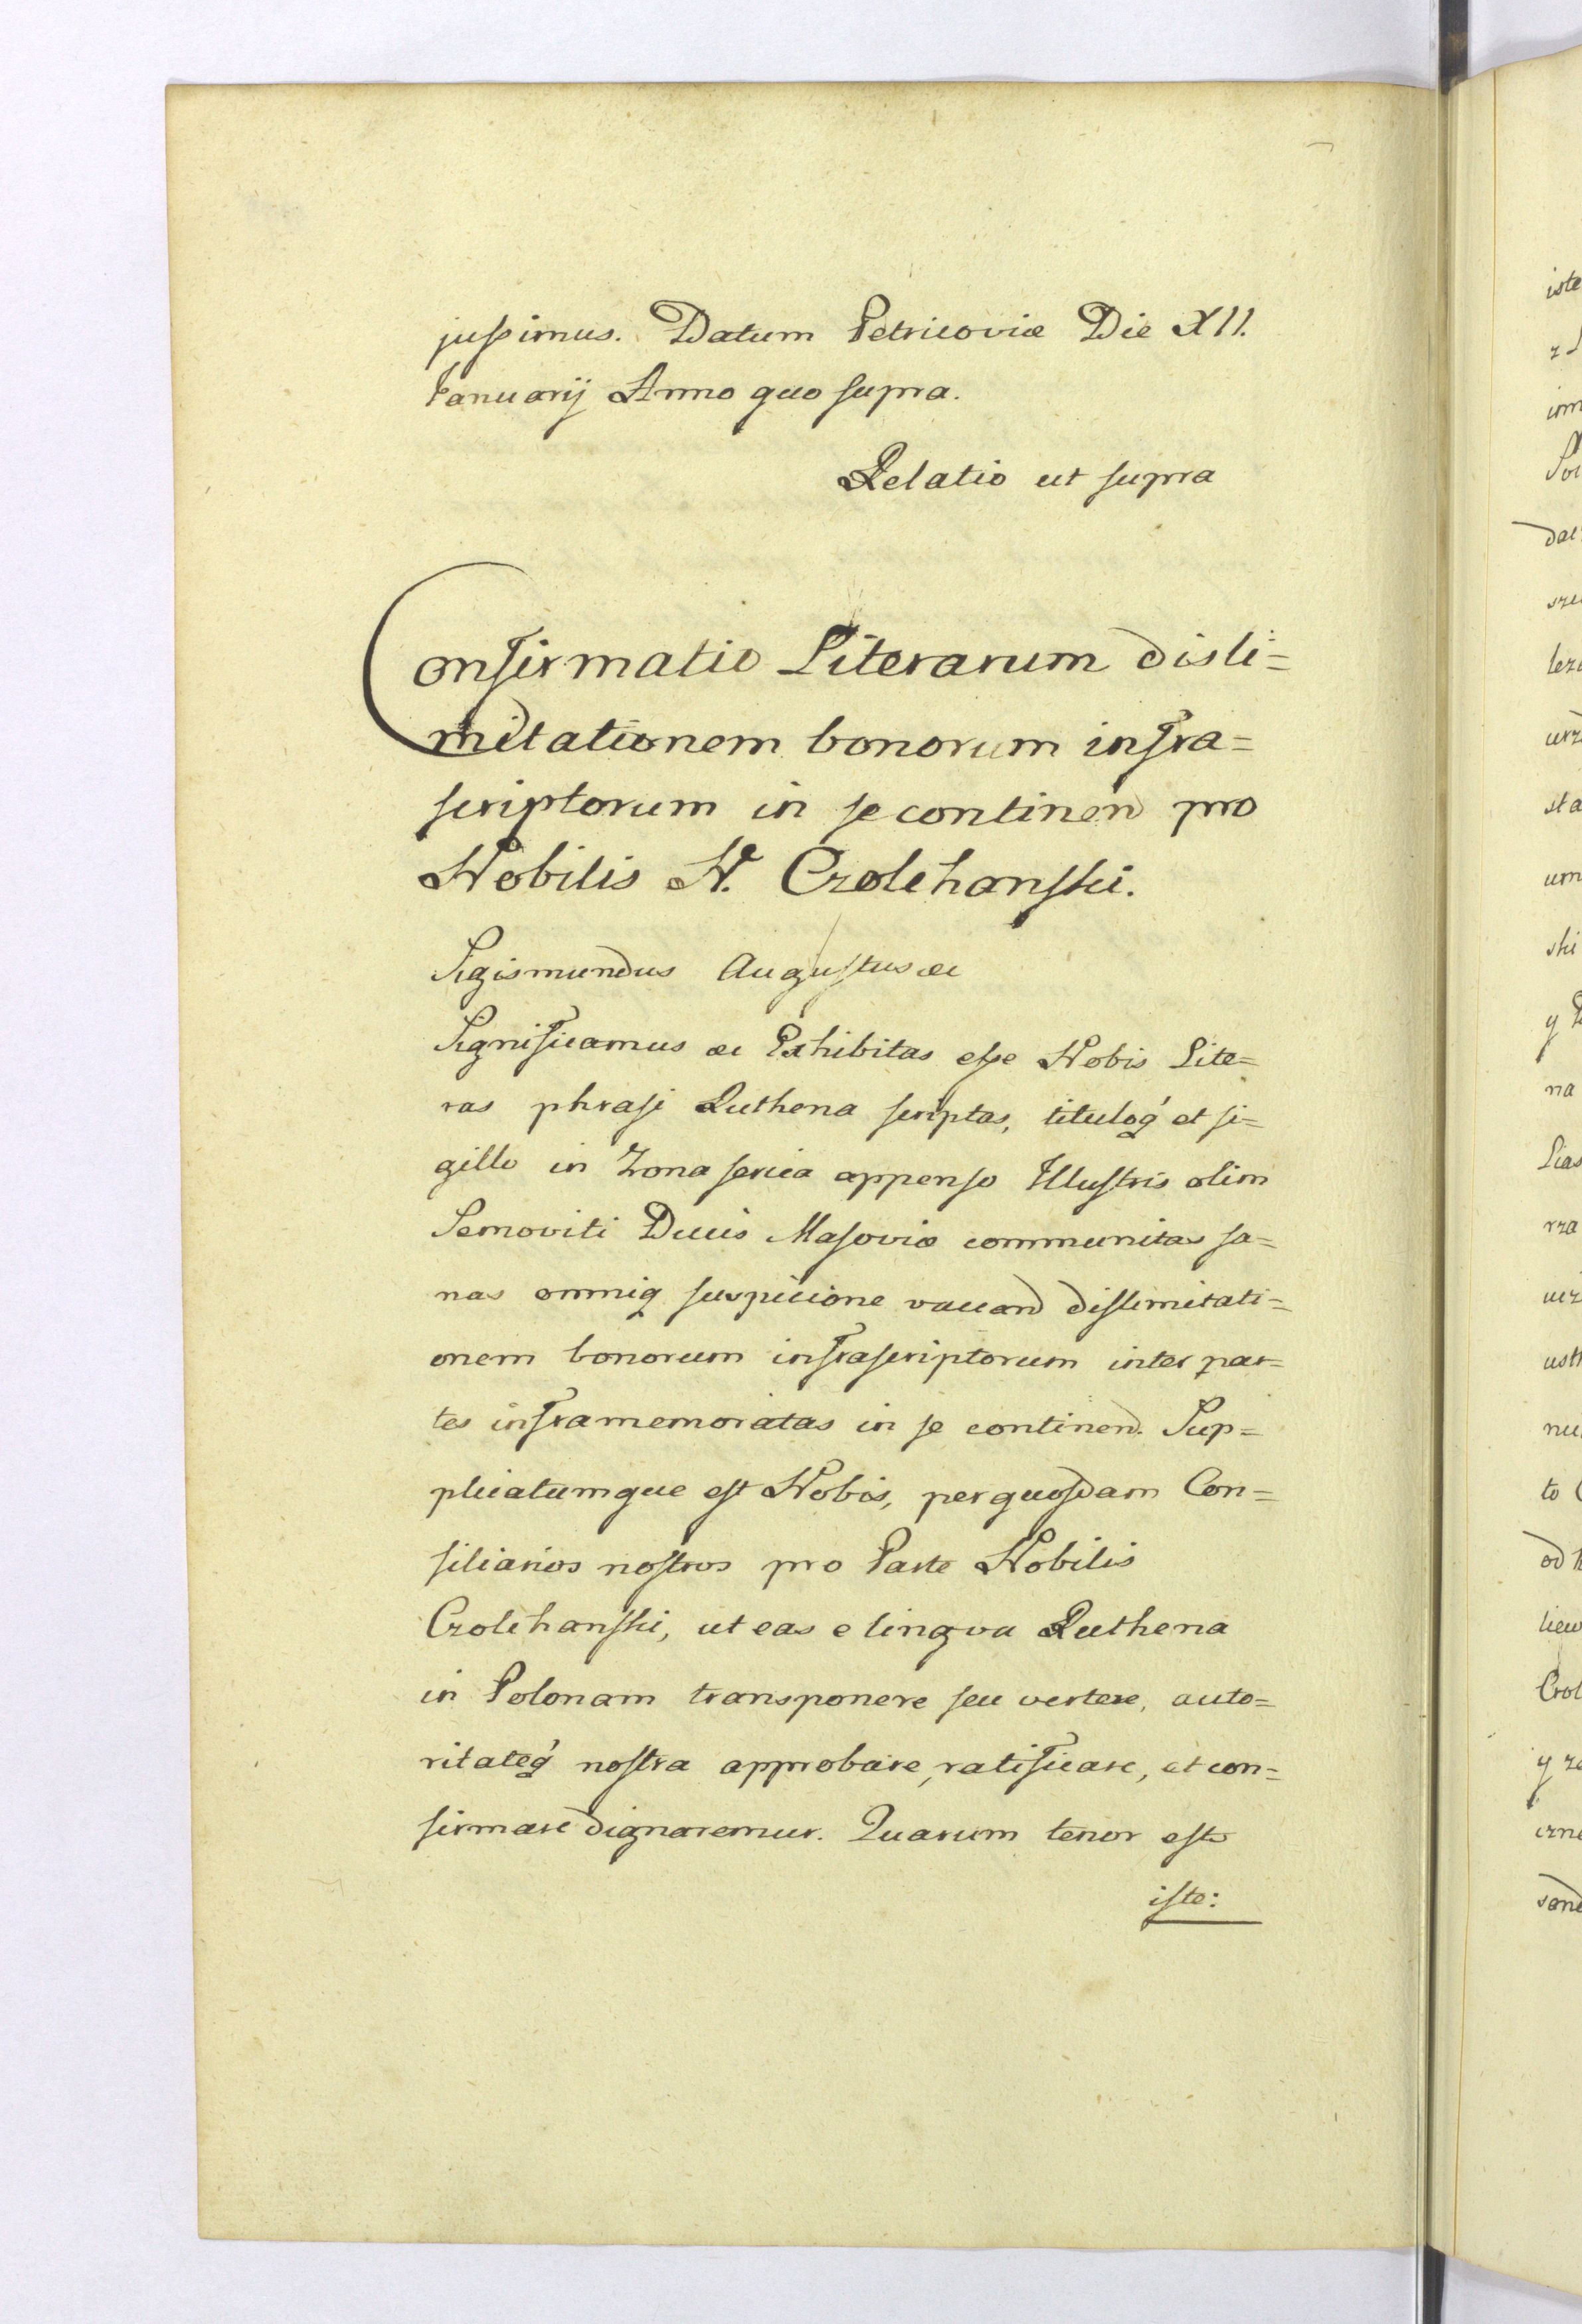 jussimus. Datum Petricoviæ Die XII.
Januarij Anno quo supra.
Relatio ut supra
Confirmatio Literarum disli=
mitationem bonorum infra=
scriptorum in se continen pro
Nobilis N. Czolchanski.
Sigismundus Augustus &c
Significamus &c Exhibitas esse Nobis Lite=
ras phrasi Ruthena scriptas, tituloq́ et si=
gillo in Zona serica appenso Illustris olim
Semoviti Ducis Masoviæ communitas sa=
nas omniq suspicione vacuand disslimitati=
onem bonorum infrascriptorum inter par=
tes inframemoratas in se continend. Sup=
plicatumque est Nobis, per quosdam Con=
siliarios nostros pro Parte Nobilis
Czolchanski, ut eas e lingva Ruthena
in Polonam transponere seu vertere, auto=
ritateq́ nostra approbare, ratificare, et con=
firmare dignaremur. Quarum tenor est
iste: